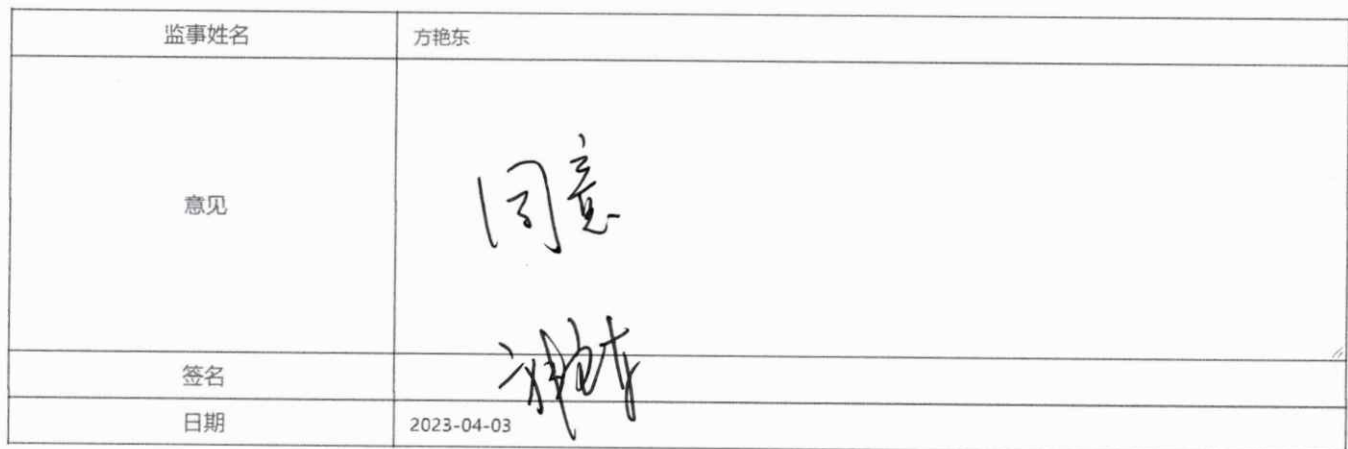 监事姓名 方艳东
意见 同意
签名 方艳东
日期 2023-04-03